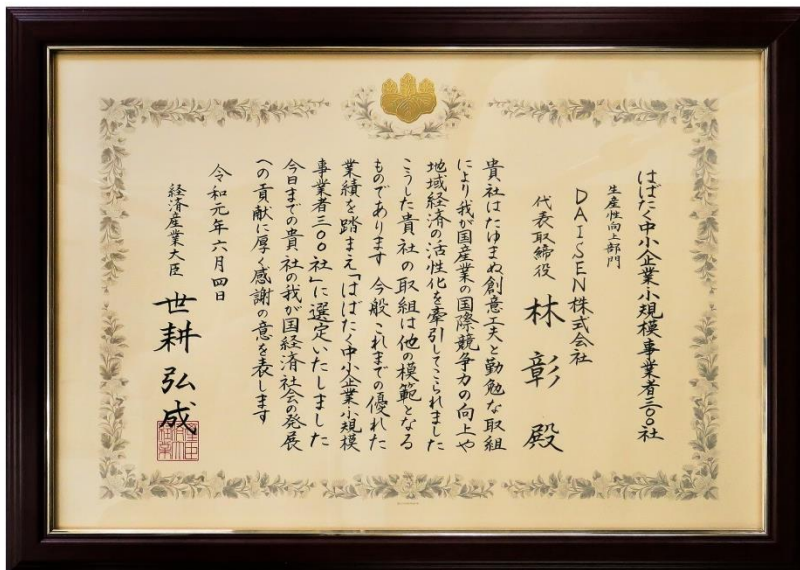 はばたく中小企業・小規模事業者三〇〇社
生産性向上部門
DAISEN株式会社
代表取締役 林 彰 殿
貴社はたゆまぬ創意工夫と勤勉な取組
により我が国産業の国際競争力の向上や
地域経済の活性化を牽引してこられました
こうした貴社の取組は他の模範となる
ものであります 今般これまでの優れた
業績を踏まえ「はばたく中小企業・小規模
事業者三〇〇社」に選定いたしました
今日までの貴社の我が国経済社会の発展
への貢献に厚く感謝の意を表します
令和元年六月四日
経済産業大臣 世耕弘成